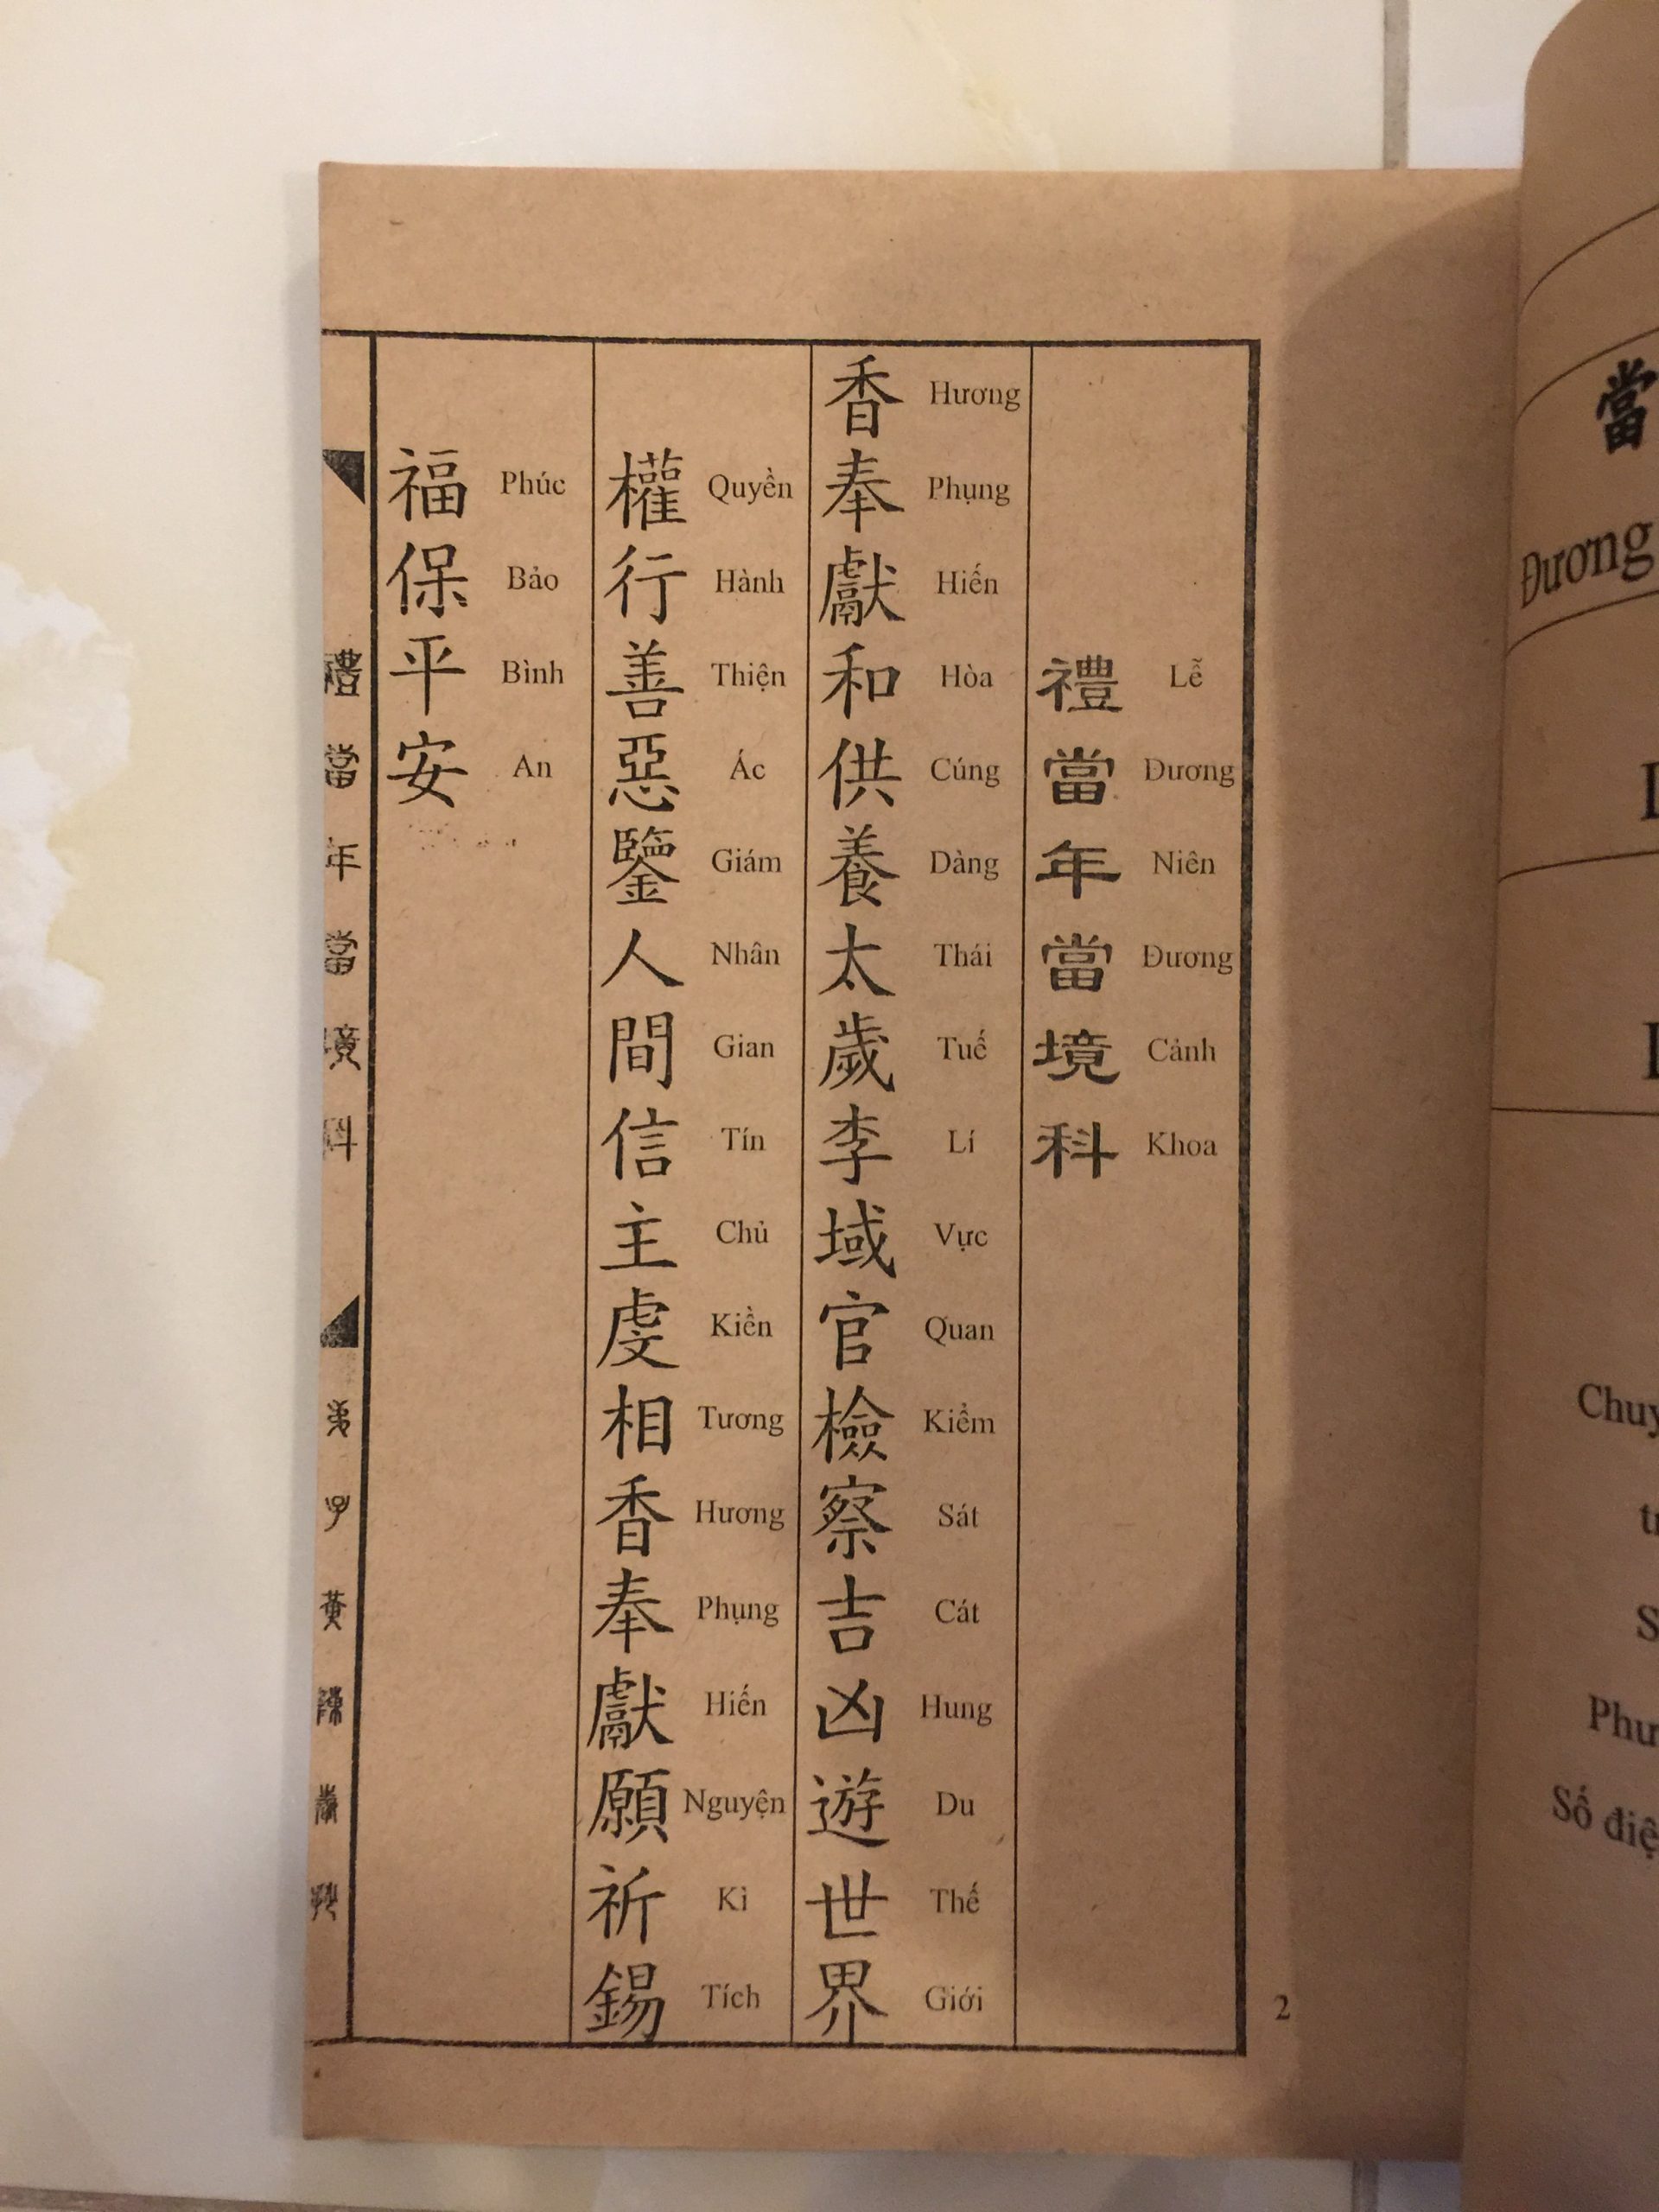 禮 Lễ
當 Đương
年 Niên
當 Đương
境 Cảnh
科 Khoa
香 Hương
奉 Phụng
獻 Hiến
和 Hòa
供 Cúng
養 Dàng
太 Thái
歲 Tuế
李 Lí
域 Vực
官 Quan
檢 Kiểm
察 Sát
吉 Cát
凶 Hung
遊 Du
世 Thế
界 Giới
權 Quyền
行 Hành
善 Thiện
惡 Ác
鑒 Giám
人 Nhân
間 Gian
信 Tín
主 Chủ
虔 Kiền
相 Tương
香 Hương
奉 Phụng
獻 Hiến
願 Nguyện
祈 Kì
錫 Tích
福 Phúc
保 Bảo
平 Bình
安 An
禮當年當境科
弟子黃
2
當
Đương
Số